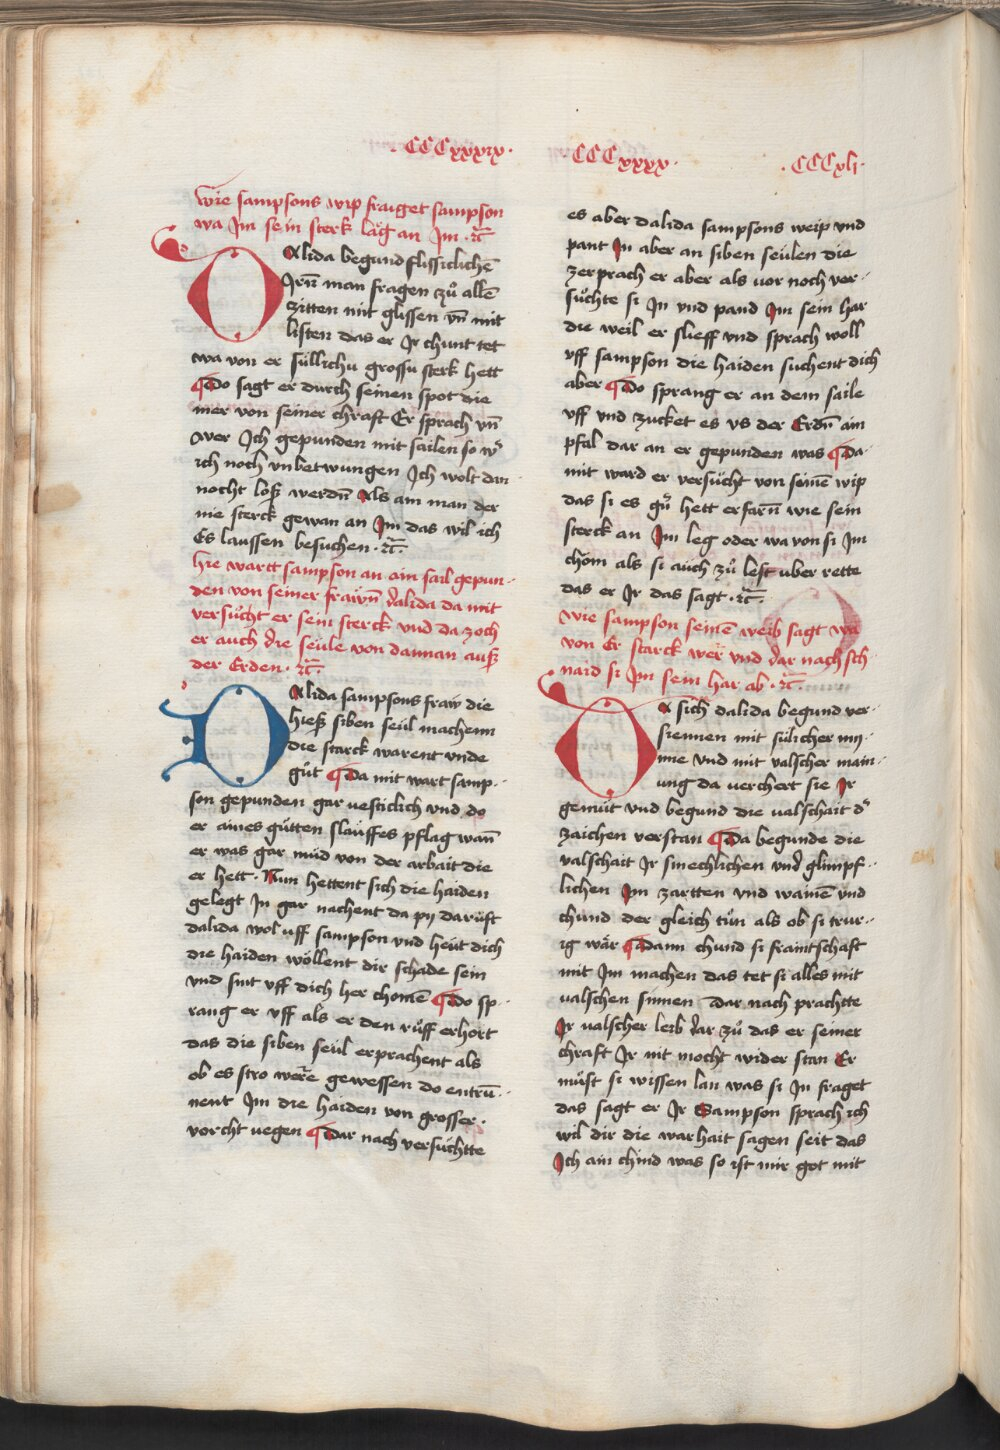 .CCCxxxix. .CCCxxxx. .CCCxli.
wie sampsons wip fraiget sampson
wa Im sein sterk läg an Im .rc̄
DAlida begund flissiclichē
Irn̄ man fragen zů allē
zitten mit glissen vn̄ mit
listen das er Ir chunt tet
wa von er süllichu grossu sterk hett
¶Do sagt er durch seinen spot die
mer von seiner chraft Er sprach vn̄
wer Ich gepunden mit sailen so w̕
ich noch vnbetwungen Ich wolt dan-
nocht loß werdn̄ Als ain man der
nie sterck gewan an Im das wil ich
Es laussen besuchen .rc̄.
hie wartt sampson an ain sail gepun-
den von seiner frawn̄ dalida da mit
versůcht er sein sterck vnd da zoch
er auch die seule von dannan auß
der Erden .rc̄.
DAlida sampsons fraw die
hieß siben seul machenn
die starck warent vnde
gůt ¶Da mit wart samp-
son gepunden gar vesticlich vnd do
er aines gůtten slauffes pflag wan̄
er was gar müd von der arbait die
er hett. Nun hettent sich die haiden
gelegt In gar nachent da py darüft
dalida wol uff sampson vnd heüt dich
die haiden wöllent dir schade sein
vnd sint vff dich her chomē ¶Do sp-
rang er vff als er den růff erhort
das die siben seul erprachent als
ob es stro were gewessen do entrū-
nent Im die haiden von grosser
vorcht wegen ¶Dar nach versuchtte
es aber dalida sampsons weip vnd
pant In aber an siben seulen die
zerprach er aber als vor noch ver-
sůchte si In vnd pand Im sein har
die weil er slieff vnd sprach woll
vff sampson die haiden suchent dich
aber ¶Do sprang er an dem saile
vff vnd zucket es vs der Erdn̄ ain
pfal dar an er gepunden was ¶Da
mit ward er versücht von seinē wip
das si es gr̄ hett erfarn̄ wie sein
sterck an Im leg oder wa von si Im
chöm als si auch zů lest uber rette
das er Ir das sagt .rc̄.
wie sampson seinē weib sagt wa
von Er starck wer vnd dar nach sch-
naid si Im sein har ab .rc̄.
DA sich dalida begund ver-
siennen mit sülicher my-
nne vnd mit valscher main-
ung da verchert sie Ir
gemüt vnd begund die valschait d̕
zaichen verstan ¶Da begunde die
valschait Ir smechlichen vnd glimpf-
lichen Im zartten vnd wainē vnd
chund der gleich tůn als ob si trur-
ig wär ¶Dann chund si fraintschaft
mit Im machen das tet si alles mit
valschen sinnen Dar nach prachtte
Ir valscher leib dar zů das er seiner
chraft Ir nit mocht wider stan Er
můst si wissen lan was si In fraget
das sagt er Ir Sampson sprach ich
wil dir die warhait sagen seit das
Ich ain chind was so ist mir got mit